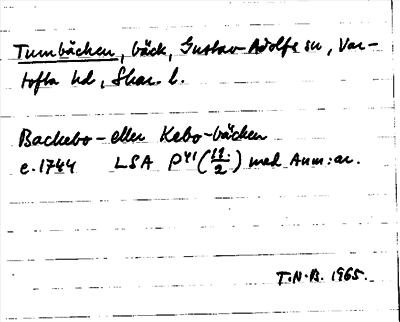 Tumbäcken, bäck, Gustav-Adolfs sn, Var-
tofta hd, Skar. l.
Backebo- eller Kebo-bäcken
c. 1744 LSA P41 (11/2) med Anm:ar.
T.N.B. 1965.